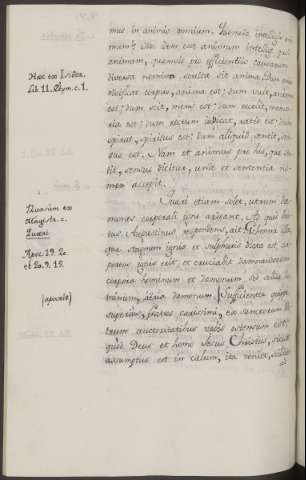 mus in animis omnium. Juxta intellige
mens. Sed idem est animum intellige, qui
animam, quamvis pro efficientiis causarum
diversa nomina sortita sit anima. Dum enim
vivificat corpus, anima est: dum vult, animus
est: dum scit, mens est: dum recolit, memo
ria est: dum rectum judicat, ratio est: dum
spirat, spiritus est: dum aliquid sentit, sen
sus est. Nam et animus pro his, quæ sen
tit, sensus dicitur, unde et sententia no
men accepit.
Hæc ex Isidor.
Lib. 11. Etym. c. 1.
Quæri etiam solet, utrum dæ
mones corporali igne ardeant. Ad quod bea
tus Augustinus respondens, ait: Gehenna illa,
quæ stagnum ignis et sulphuris dicta est, cor
poreus ignis erit, et cruciabit damnatorum
corpora hominum et dæmonum,
aëria dæmonum. Sufficienter quippe
superius, fratres carissimi, ex sanctorum Pa
trum auctoritatibus vobis ostensum est,
quod Deus et homo Jesus Christus, sicut
assumptus est in cælum, ita veniet,
Magistr. c.
Apoc. 19. 20.
et 20. 9. 15.